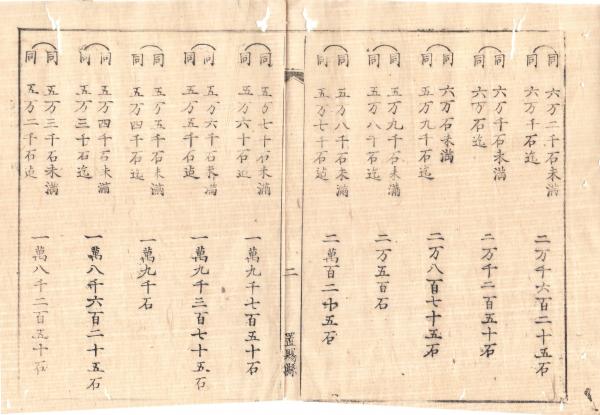 同 六万二千石未満
同 六万千石迄
二万千六百二十五石
同 六万千石未満
同 六万石迄
二万千二百五十石
同 六万石未満
同 五万九千石迄
二万八百七十五石
同 五万九千石未満
同 五万八千石迄
二万五百石
同 五万八千石未満
同 五万七千石迄
二萬百二十五石
二
置賜縣
同 五万七千石未満
同 五万六千石迄
一萬九千七百五十石
同 五万六千石未満
同 五万五千石迄
一萬九千三百七十五石
同 五万五千石未満
同 五万四千石迄
一萬九千石
同 五万四千石未満
同 五万三千石迄
一萬八千六百二十五石
同 五万三千石未満
同 五万二千石迄
一萬八千二百五十石